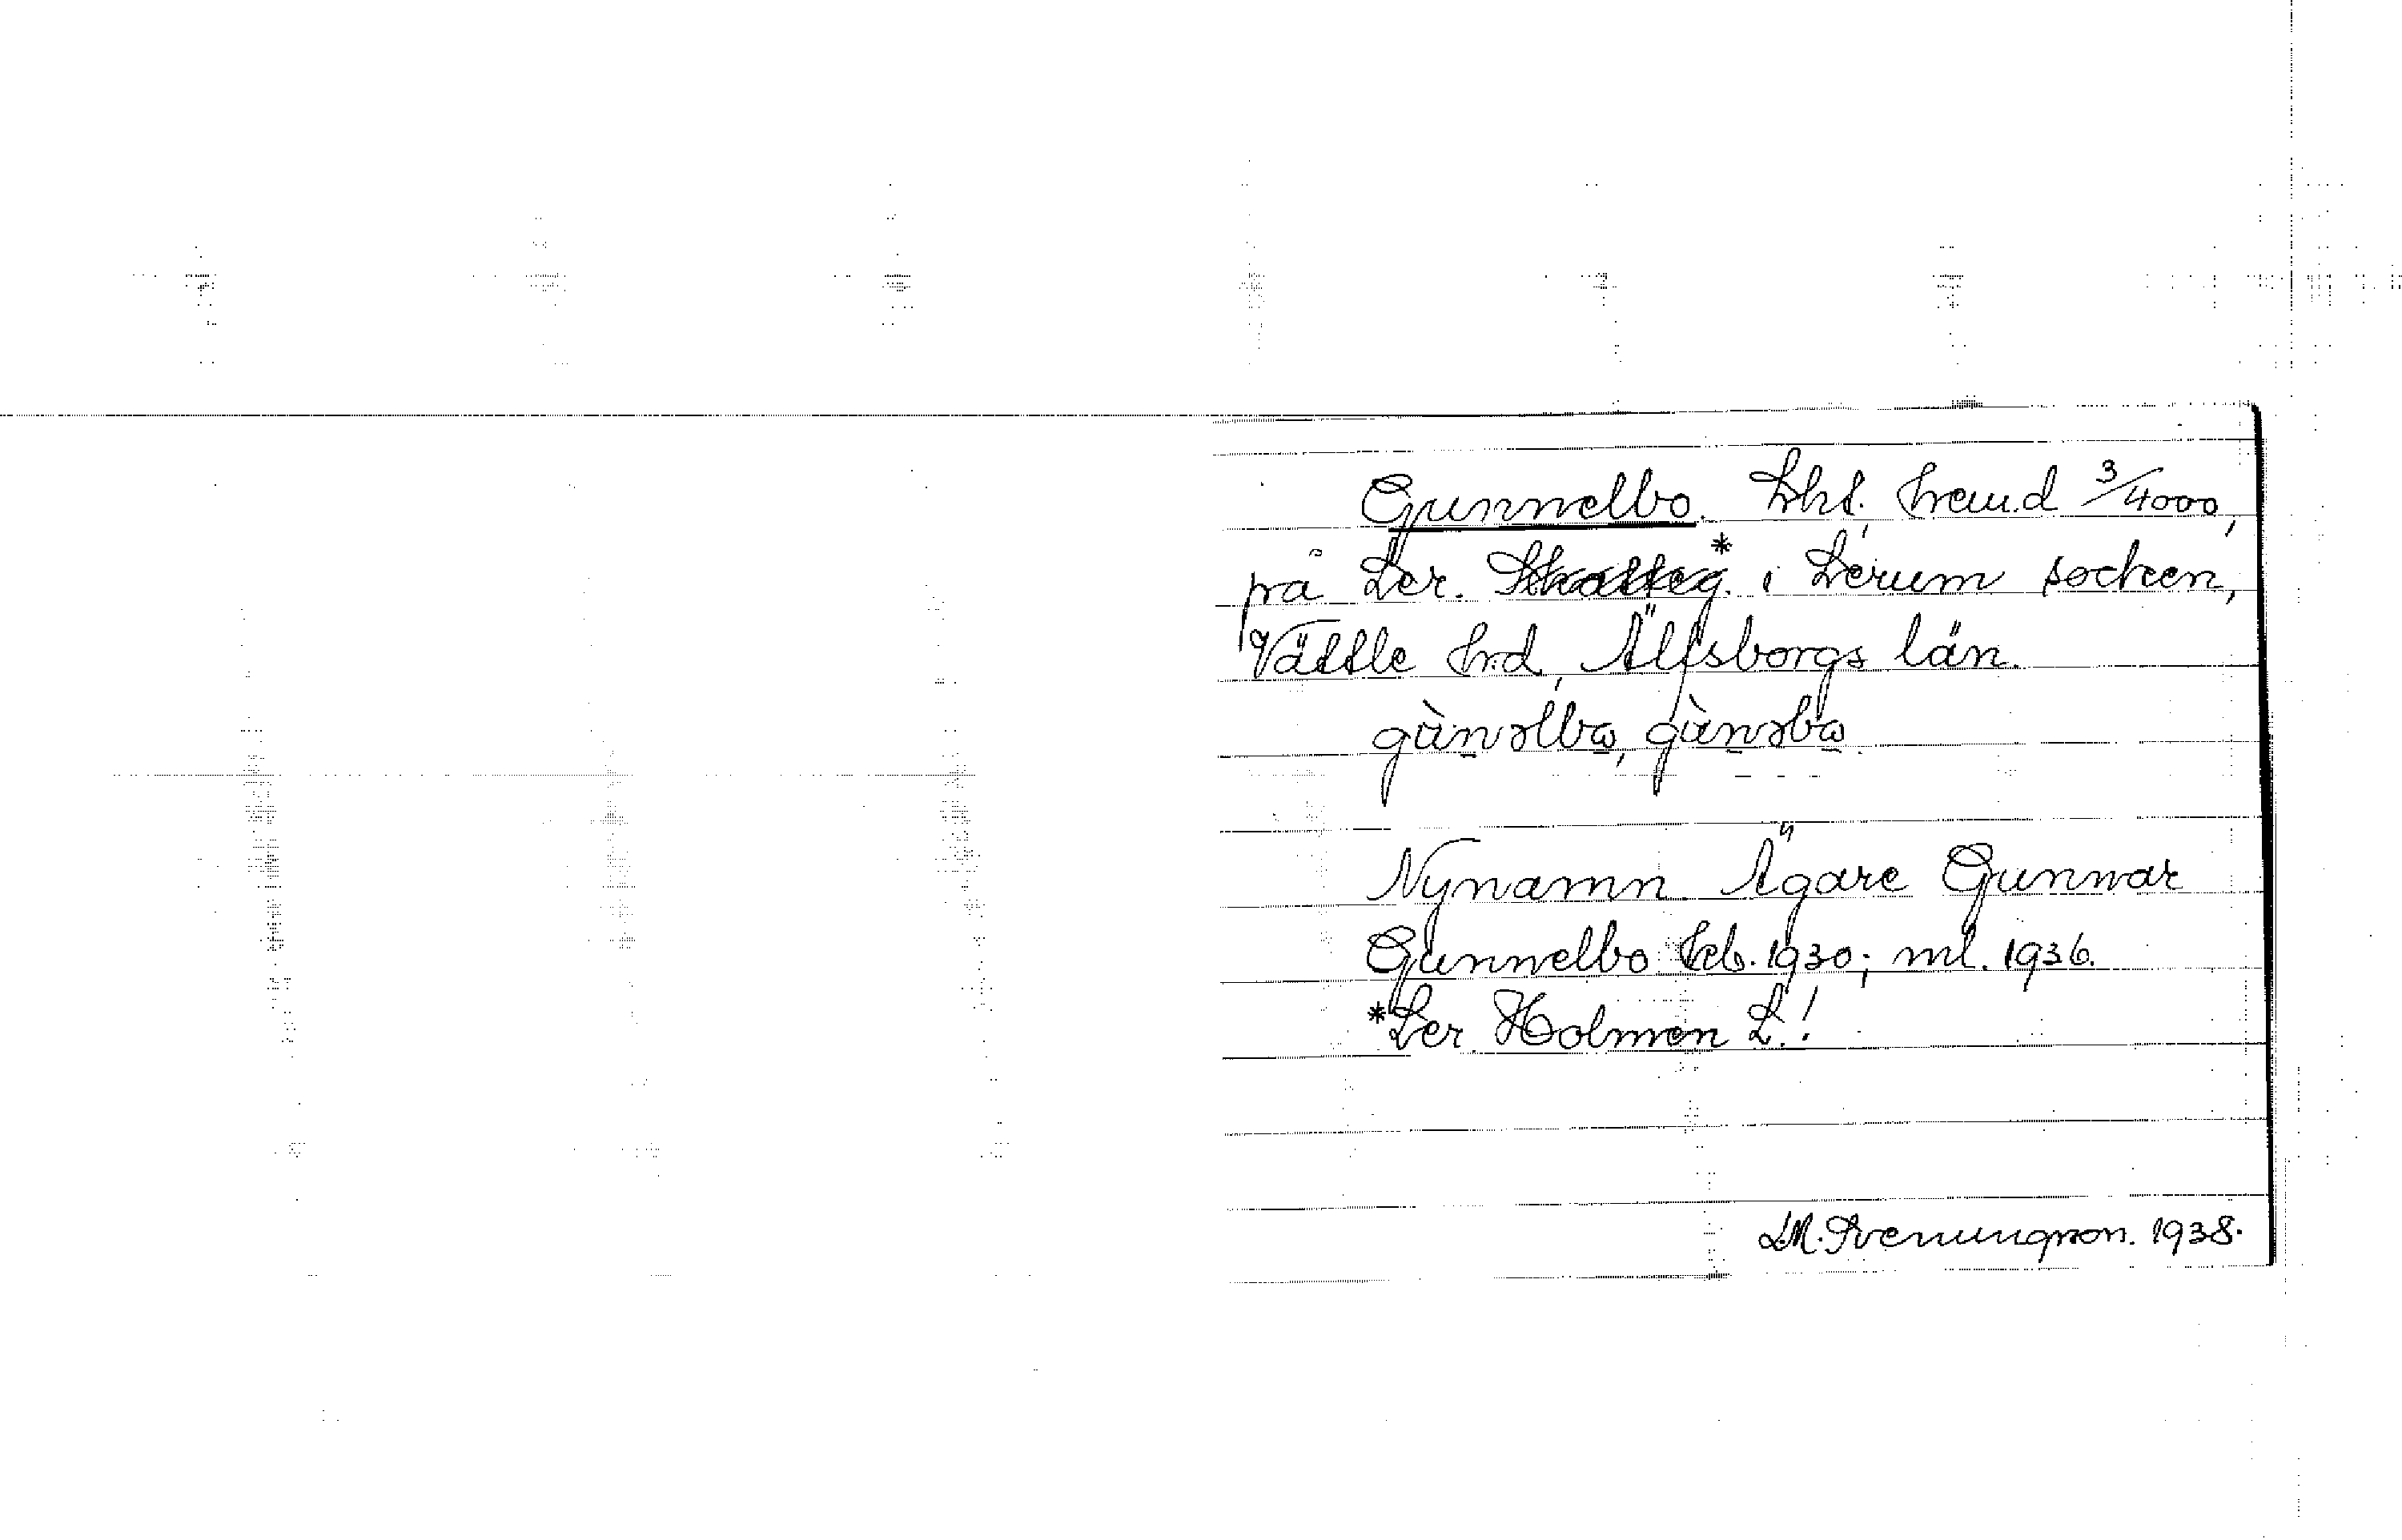 Gunnelbo. Lht. hemd 3/4000,
på Ler. Skatteg.* i Lerum socken,
Vättle hd, Älfsborgs län.
gùnəlbo, gùnəbo.
Nynamn. Ägare Gunnar
Gunnelbo Lcb. 1930; ml. 1936.
*Ler Holmen L.!
1938.